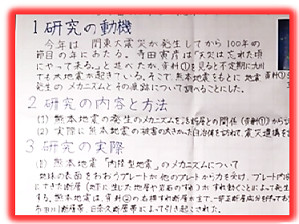 1 研究の動機
今年は、関東大震災が発生してから100年の
節目の年にあたる。寺田寅彦は「天災は忘れた頃に
やって来る。」と述べたが、資料①を見ると不定期に九州
でも大地震が起きている。そこで、熊本地震をもとに、地震
発生のメカニズムとその痕跡について調べることにした。
2 研究の内容と方法
(1) 熊本地震の発生のメカニズムを活断層との関係(資料①)から
(2) 実際に熊本地震の被害の大きかった自治体を訪れて、震災遺構を
3 研究の実際
(1) 熊本地震「内陸型地震」のメカニズムについて
地球の表面をおおうプレートが他のプレートから力を受け、プレート内部
にできた断層(地下に生じた地層や岩石の
)がずれ動くことによって発生
する。熊本地震は、資料②の
布田川断層帯、日奈久断層帯によって引き起こされた。